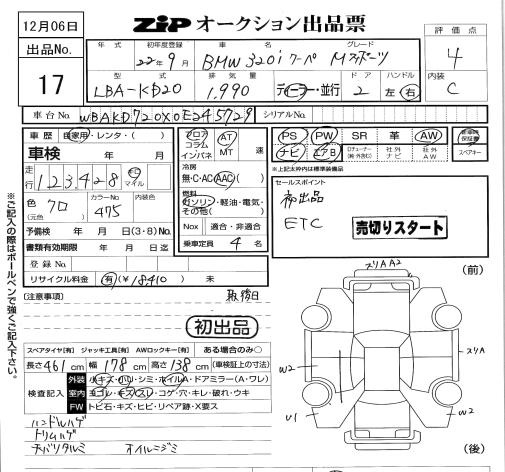 12月06日
ZIP オークション出品票
出品No.
17
年式 初年度登録 車名 グレード
22年9月 BMW 320i クーペ Mスポーツ
型式 排気量 ドア ハンドル
LBA-KD20 1,990 ディーラー・並行 2 左 右
評価点
4
内装
C
車台No. WBAKD720X0E245729 シリアルNo.
車歴 自家用・レンタ・( )
車検 年 月
走行 123,428 km マイル
色 クロ (元色) カラーNo 475 内装色
予備検 年 月 日(3・8)No.
書類有効期限 年 月 日迄
登録No.
リサイクル料金 有(¥18,410) 未
フロア コラム インパネ AT MT 速
冷房
無・C・AC・AAC
燃料
ガソリン・軽油・電気・その他( )
Nox 適合・非適合
乗車定員 4 名
PS PW SR 革 AW 新車時保証書
ナビ エアB 社外ナビ 社外AW スペアキー
*上記太枠内は標準装備品
セールスポイント
初出品
ETC
売切りスタート
(注意事項)
初出品
スペアタイヤ[有] ジャッキ工具[有] AWロックキー[有] ある場合のみ○
長さ461cm 幅178cm 高さ138cm (車検証上の寸法)
検査記入
外装 小キズ・小凹・シミ・ホイルA・ドアミラー(A・ワレ)
室内 ヨゴレ・キズ・スレ・コゲ・穴・キレ・破れ・ウキ
FW トビ石・キズ・ヒビ・リペア跡・X要ス
ハンドルハゲ
トリムハゲ
天バリタルミ オイルニジミ
スリA A2
(前)
スリA
W2
U1
W2
(後)
※ご記入の際はボールペンで強くご記入下さい。